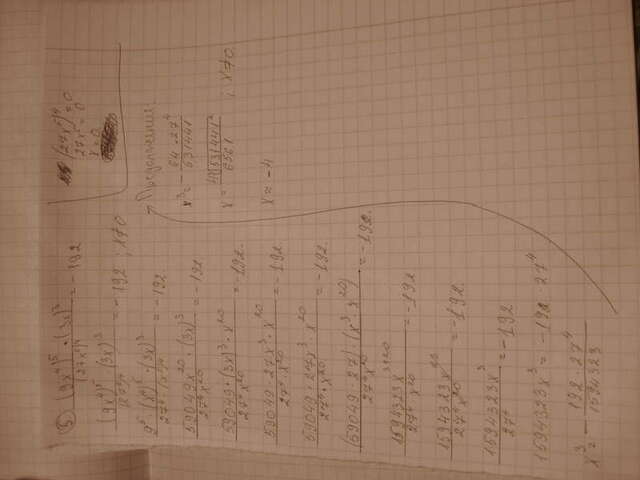 5) ((9x⁴)⁵ · (3x)³)/(27x⁵)⁴ = -192
((9x⁴)⁵ · (3x)³)/(27x⁵)⁴ = -192 ; x≠0
(9⁵ · (x⁴)⁵ · (3x)³)/(27⁴(x⁵)⁴) = -192
(59049x²⁰ · (3x)³)/(27⁴x²⁰) = -192
(59049 · (3x)³ · x²⁰)/(27⁴ · x²⁰) = -192.
(59049 · 27x³ · x²⁰)/(27⁴ · x²⁰) = -192
(59049 · 27x³ · x²⁰)/(27⁴ · x²⁰) = -192
((59049 · 27) (x³ · x²⁰))/(27⁴ x²⁰) = -192.
(1594323x³⁺²⁰)/(27⁴ x²⁰) = -192
(1594323x²³)/(27⁴x²⁰) = -192.
(1594323x³)/27⁴ = -192
1594323x³ = -192 · 27⁴
x³ = - (192 · 27⁴)/1594323
(27x⁵)⁴ = 0
27x⁵ = 0
x = 0
Продолжение
x³ = - (64 · 27⁴)/531441
x = ; x≠0
x = -4